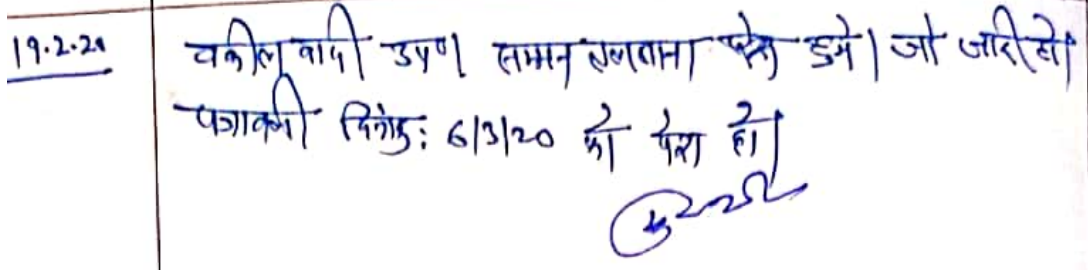 19.2.20
वकील वादी उप०। सम्मन तलवाना पेश हुये। जो जारी हो।
पत्रावली दिनांक: 6/3/20 को पेश हो।